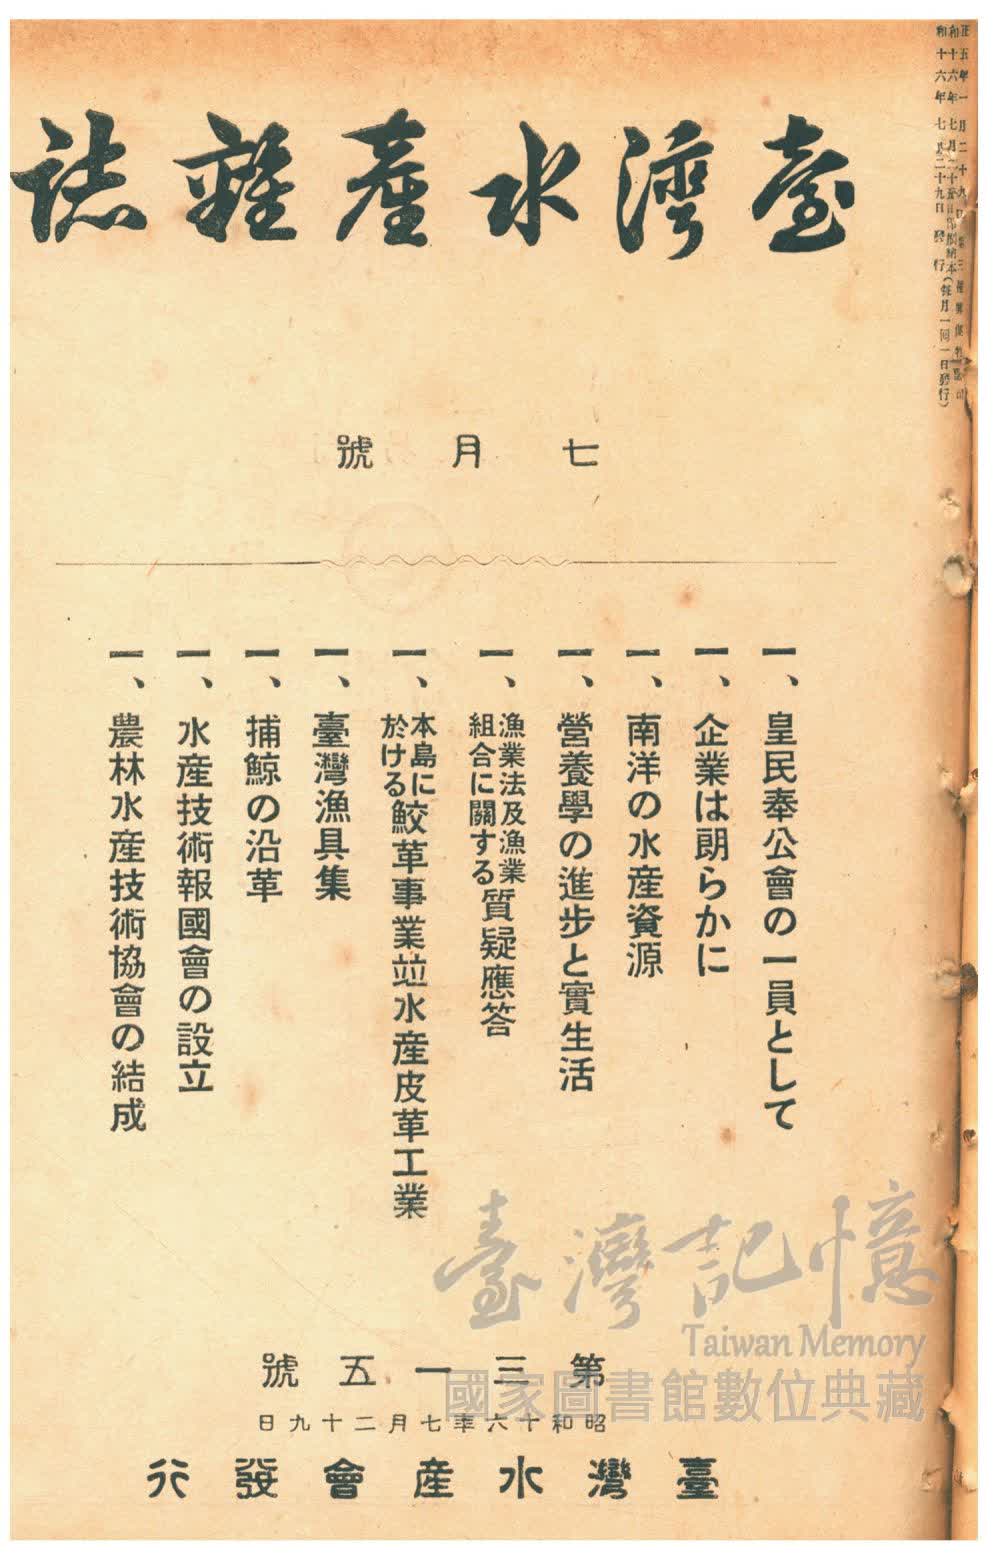 正五年一月二十九日第三種郵便物認可
和十六年七月二十五日印刷納本（每月一回一日發行）
和十六年七月二十九日發行
臺灣水產雜誌
七月號
一、皇民奉公會の一員として
一、企業は朗らかに
一、南洋の水產資源
一、營養學の進步と實生活
一、漁業法及漁業組合に關する質疑應答
一、本島に於ける鮫革事業竝水產皮革工業
一、臺灣漁具集
一、捕鯨の沿革
一、水產技術報國會の設立
一、農林水產技術協會の結成
臺灣記憶
Taiwan Memory
國家圖書館數位典藏
第三一五號
昭和十六年七月二十九日
臺灣水產會發行